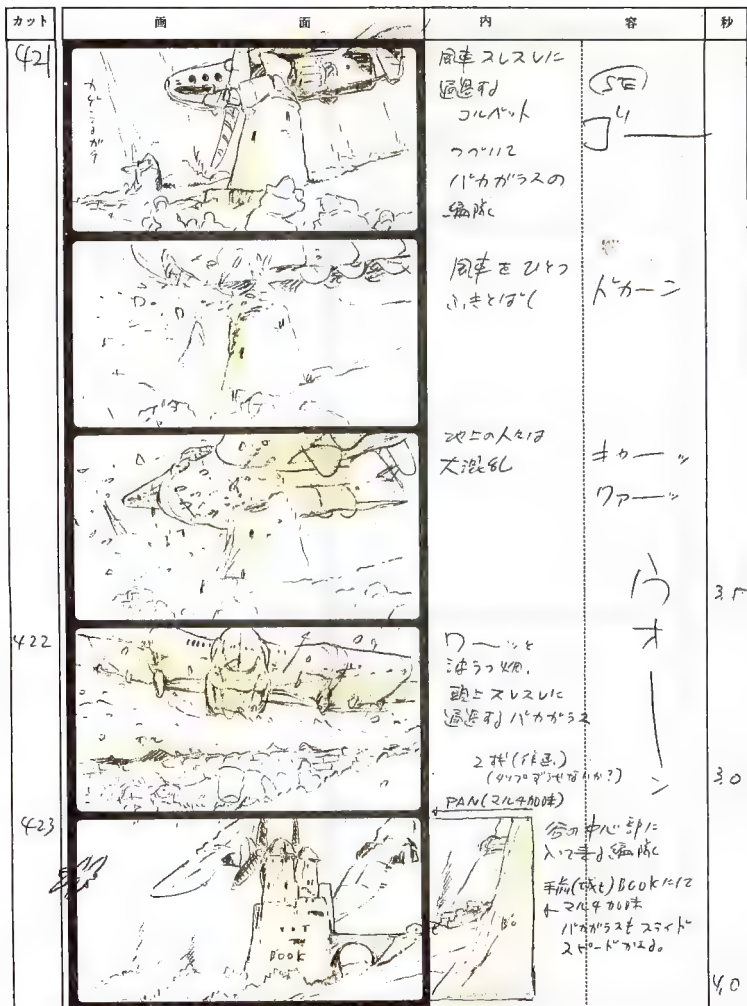 カット 画 面 内 容 秒
421
風車スレスレに
通過する
コルベット
つづいて
バカガラスの
編隊
SE
ゴー
風車をひとつ
ふきとばし
ドカーン
地上の人々は
大混乱
キャーッ
ワァーッ
3.5
422
ワーッと
波うつ畑、
頭上スレスレに
通過するバカガラス
2枚(作画)
ウオーン
3.0
PAN(マルチ加味)
423
谷の中心部に
入って来る編隊
手前(城も)BOOKにて
マルチ加味
バカガラスもスライド
スピードかえる。
BOOK
4.0